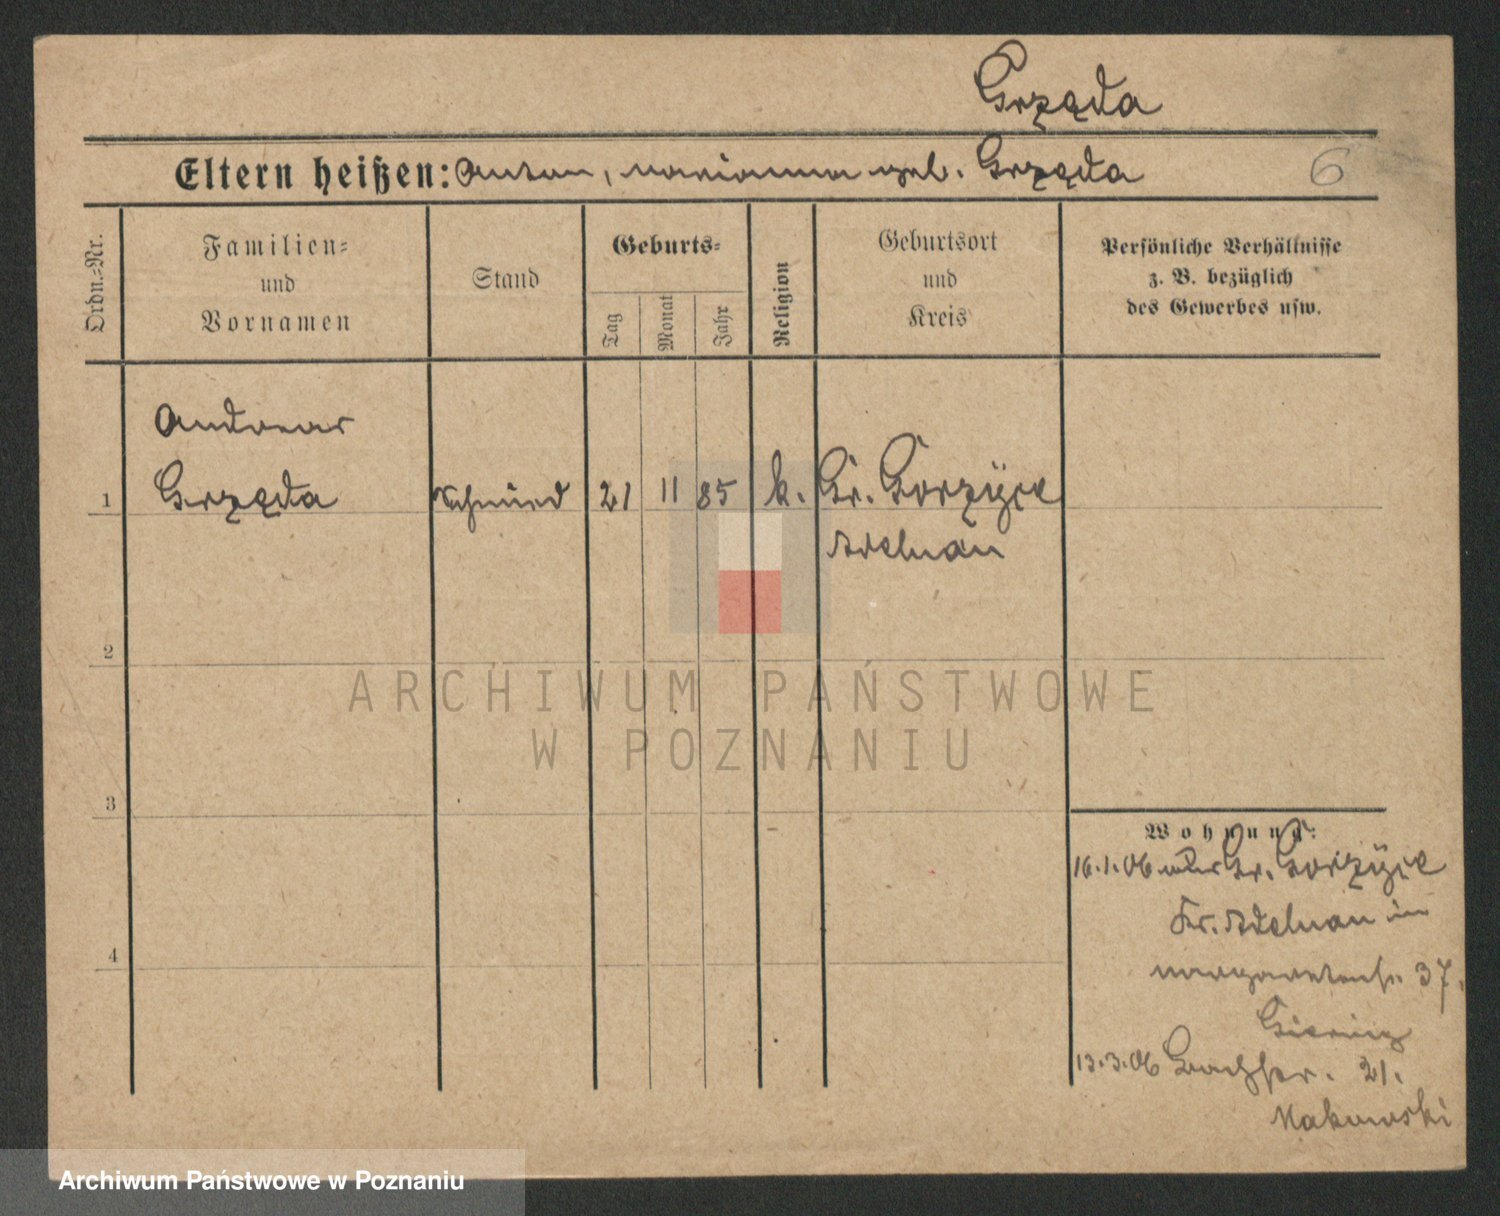 Grzęda
Eltern heißen: Anton, Marianna geb. Grzęda
6
Ordn.-Nr.
Familien-
und
Vornamen
Stand
Geburts-
Tag
Monat
Jahr
Religion
Geburtsort
und
Kreis
Persönliche Verhältnisse
z. B. bezüglich
des Gewerbes usw.
Andreas
1 Grzęda Schmied 21 11 85 k. Gr. Gorzyce
Adelnau
2
ARCHIWUM PAŃSTWOWE
W POZNANIU
3
Wohnung:
16.1.06 aus Gr. Gorzyce
Kr. Adelnau in
4
Margaretenstr. 37.
13.3.06 21.
Makowski
Archiwum Państwowe w Poznaniu